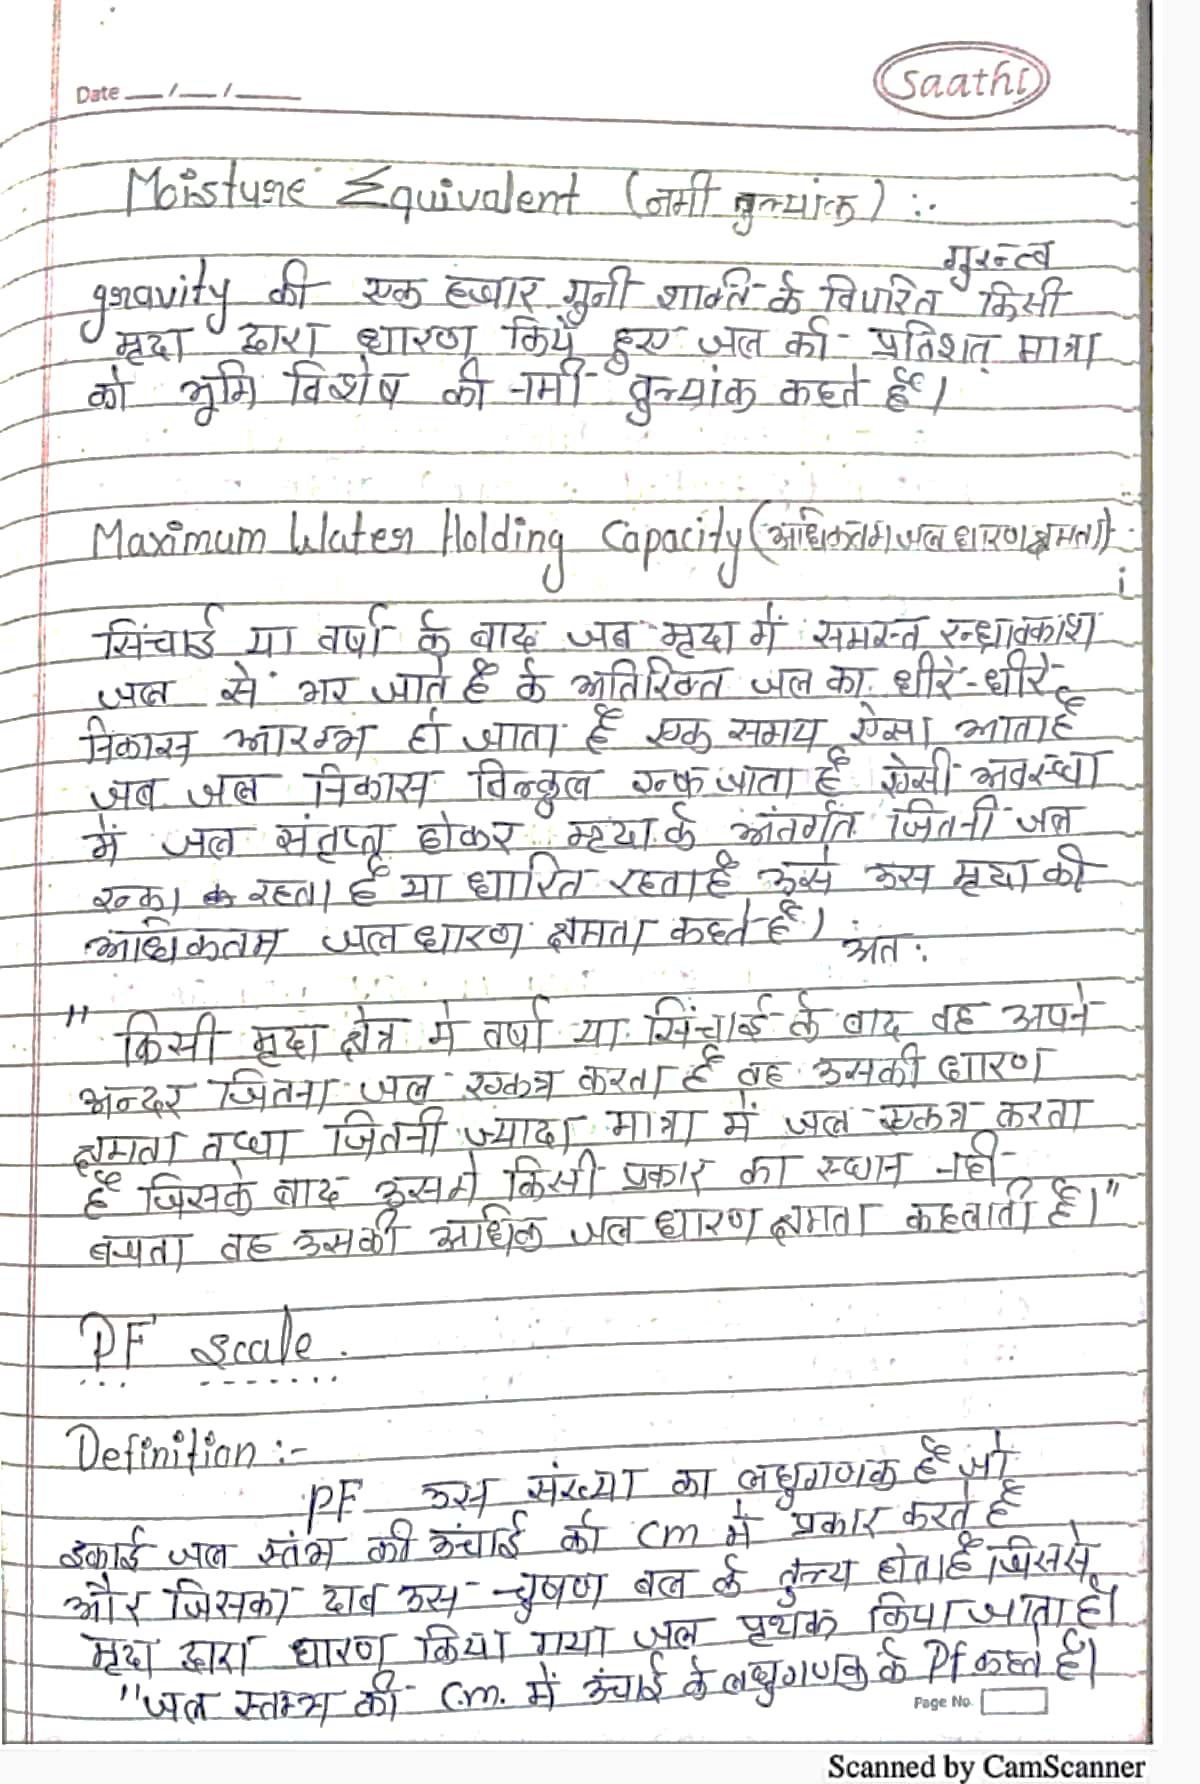 Date __/__/____
Saathi
Moisture Equivalent (नमी तुल्यांक) :-
गुरुत्व
gravity की एक हजार गुनी शक्ति के विपरित किसी
मृदा द्वारा धारण किये हुए जल की प्रतिशत् मात्रा
को भूमि विशेष की नमी तुल्यांक कहते हैं।
Maximum Water Holding Capacity (अधिकतम जल धारण क्षमता) :
सिंचाई या वर्षा के बाद जब मृदा में समस्त रन्ध्रावकाश
जल से भर जाते है के अतिरिक्त जल का धीरे-धीरे
निकास आरम्भ हो जाता है एक समय ऐसा आता है
जब जल निकास बिल्कुल रुक जाता है ऐसी अवस्था
में जल संतृप्त होकर मृदा के अंतर्गत जितनी जल
रुका रहता है या धारित रहता है उसे उस मृदा की
अधिकतम जल धारण क्षमता कहते है।
अंत :
" किसी मृदा क्षेत्र मे वर्षा या सिंचाई के बाद वह अपने
अन्दर जितना जल एकत्र करता है वह उसकी धारण
क्षमता तथा जितनी ज्यादा मात्रा में जल एकत्र करता
है जिसके बाद उसमे किसी प्रकार का स्थान नही
बचता वह उसकी अधिक जल धारण क्षमता कहलाती है।"
PF scale.
Definition :-
PF उस संख्या का लघुगणक है जो
इकाई जल स्तंभ की ऊंचाई को cm मे प्रकार करते है
और जिसका दाब उस चुषण बल के तुल्य होता है जिससे
मृदा द्वारा धारण किया गया जल पृथक किया जाता है।
"जल स्तम्भ की c.m. में ऊंचाई के लघुगणक के Pf कहते है।
Page No.
Scanned by CamScanner